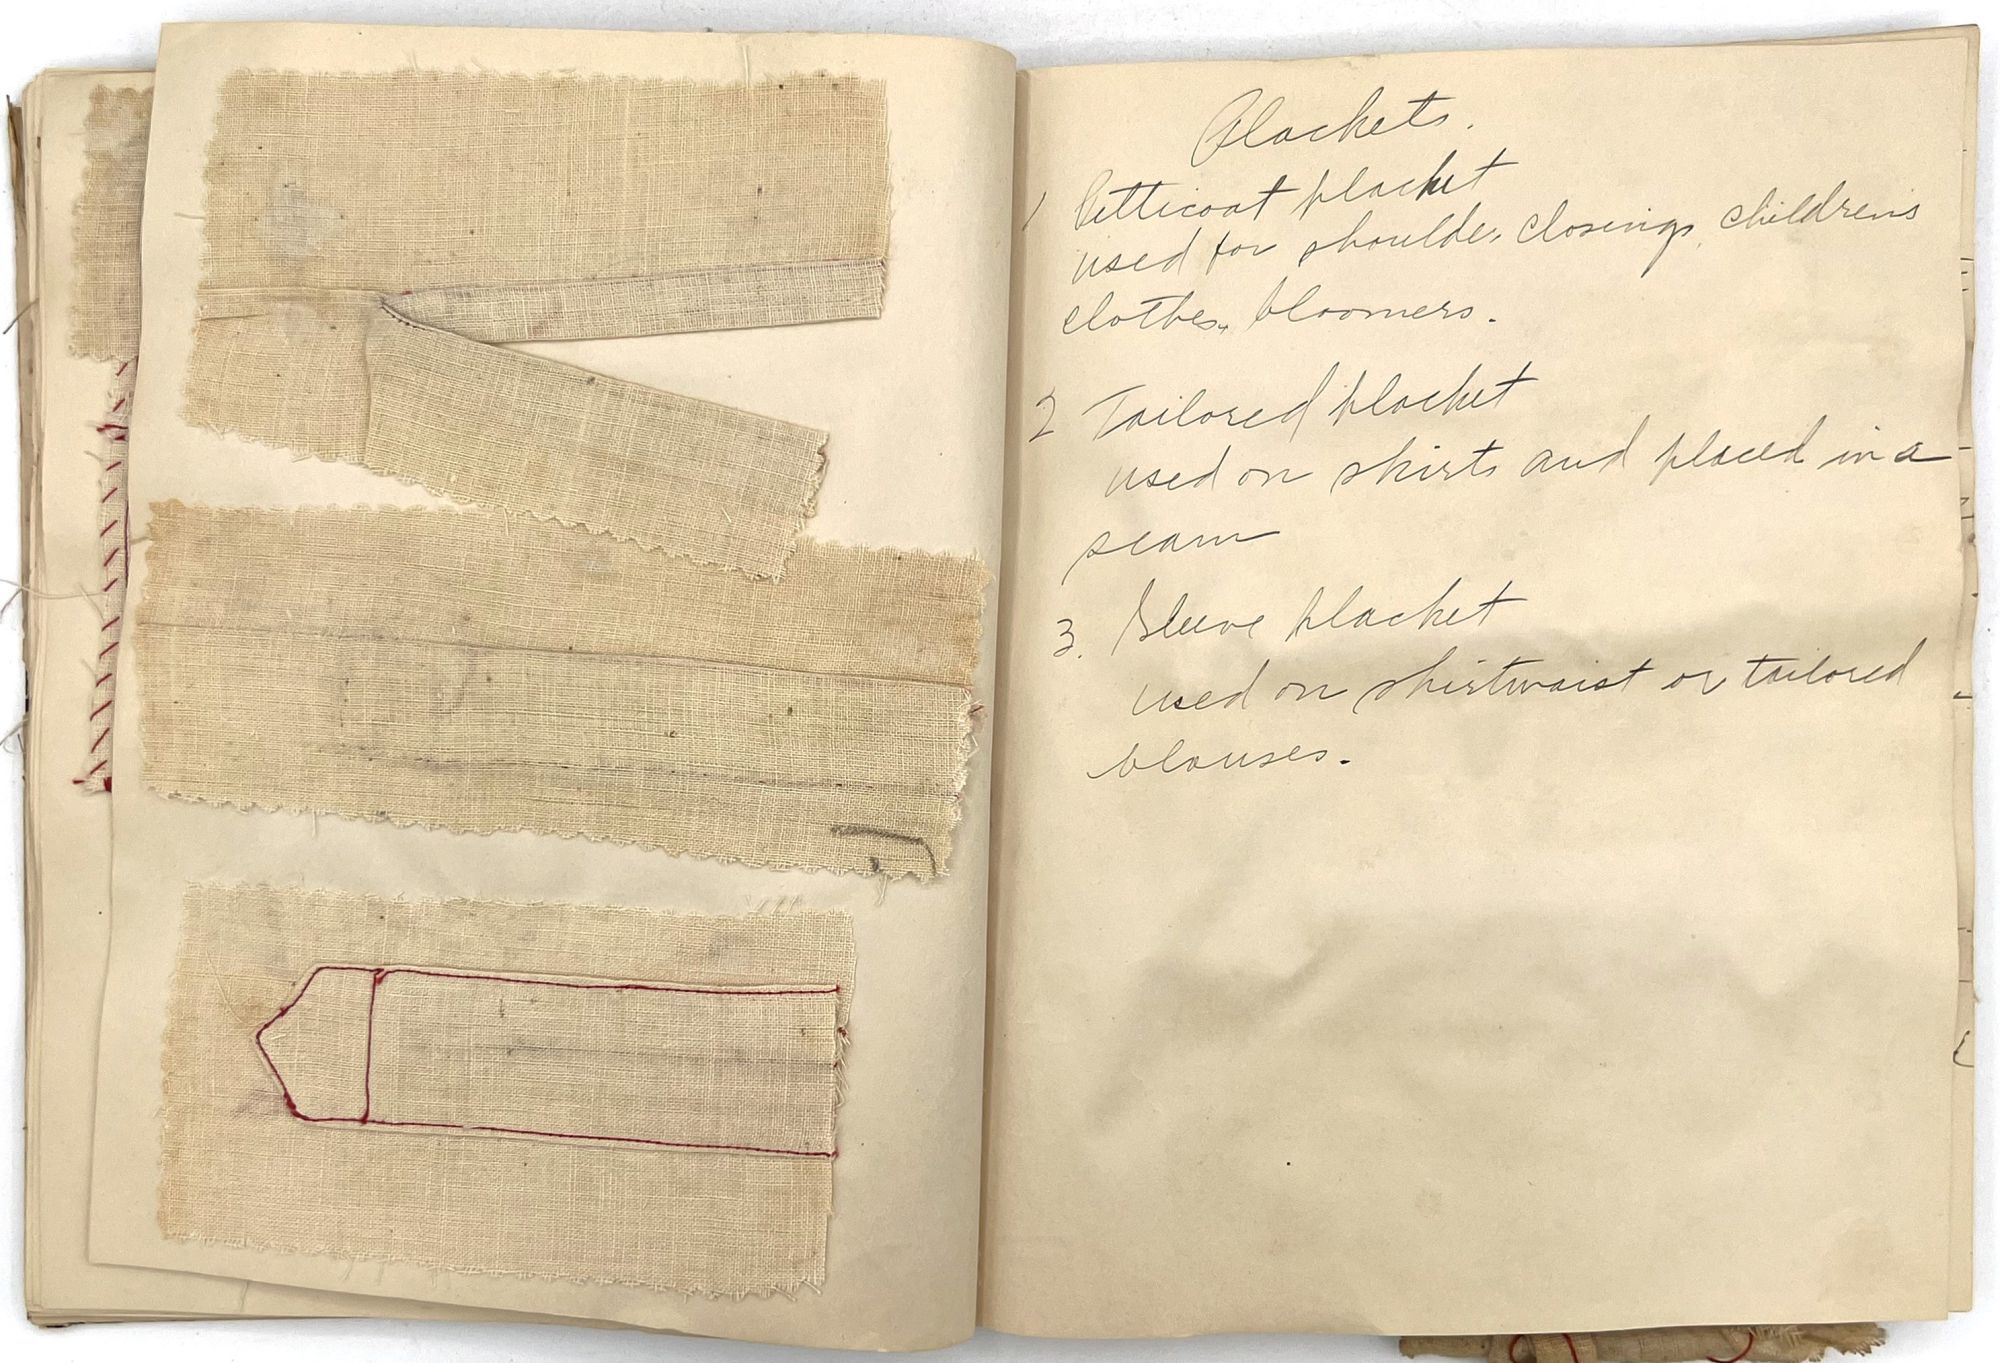 Plackets.
1 Petticoat placket
used for shoulder closings, childrens
clothes, bloomers.
2 Tailored placket
used on skirts and placed in a
seam
3. Sleeve placket
used on shirtwaist or tailored
blouses.